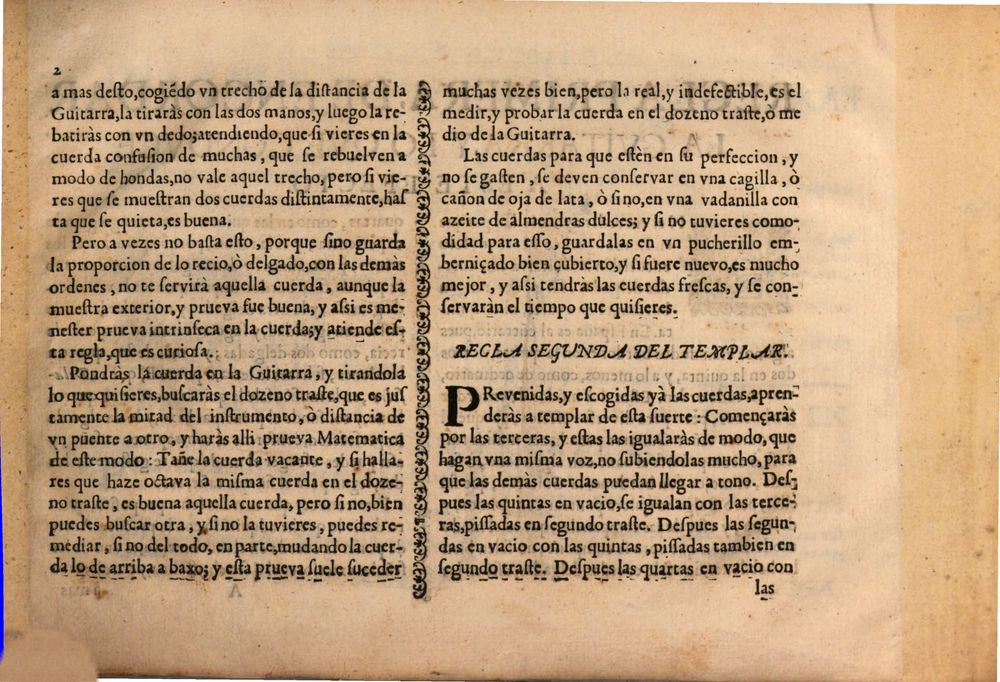 2
a mas desto,cogiẽdo vn trecho de la distancia de la
Guitarra,la tiraràs con las dos manos,y luego la re-
batiràs con vn dedo;atendiendo,que si vieres en la
cuerda confusion de muchas, que se rebuelven a
modo de hondas,no vale aquel trecho, pero si vie-
res que se muestran dos cuerdas distintamente,has
ta que se quieta,es buena.
Pero a vezes no basta esto, porque sino guarda
la proporcion de lo recio,ò delgado,con las demàs
ordenes, no te servirà aquella cuerda, aunque la
muestra exterior,y prueva fue buena, y assi es me-
nester prueva intrinseca en la cuerda;y atiende es-
ta regla,que es curiosa.
Pondràs la cuerda en la Guitarra, y tirandola
lo que quisieres,buscaràs el dozeno traste,que es jus
tamente la mitad del instrumento, ò distancia de
vn puente a otro, y haràs alli prueva Matematica
de este modo: Tañe la cuerda vacante, y si halla-
res que haze octava la misma cuerda en el doze-
no traste, es buena aquella cuerda, pero si no,bien
puedes buscar otra, y si no la tuvieres, puedes re-
mediar, si no del todo, en parte,mudando la cuer-
da lo de arriba a baxo; y esta prueva suele suceder
muchas vezes bien,pero la real,y indefectible,es el
medir,y probar la cuerda en el dozeno traste,ò me
dio de la Guitarra.
Las cuerdas para que estèn en su perfeccion, y
no se gasten, se deven conservar en vna cagilla, ò
cañon de oja de lata, ò sino,en vna vadanilla con
azeite de almendras dulces; y si no tuvieres como-
didad para esso, guardalas en vn pucherillo em-
berniçado bien cubierto,y si fuere nuevo,es mucho
mejor, y assi tendràs las cuerdas frescas, y se con-
servaràn el tiempo que quisieres.
RECLA SEGUNDA DEL TEMPLAR.
PRevenidas,y escogidas yà las cuerdas,apren-
deràs a templar de esta suerte: Començaràs
por las terceras, y estas las igualaràs de modo, que
hagan vna misma voz,no subiendolas mucho, para
que las demàs cuerdas puedan llegar a tono. Des-
pues las quintas en vacio,se igualan con las terce-
ras,pissadas en segundo traste. Despues las segun-
das en vacio con las quintas, pissadas tambien en
segundo traste. Despues las quartas en vacio con
las